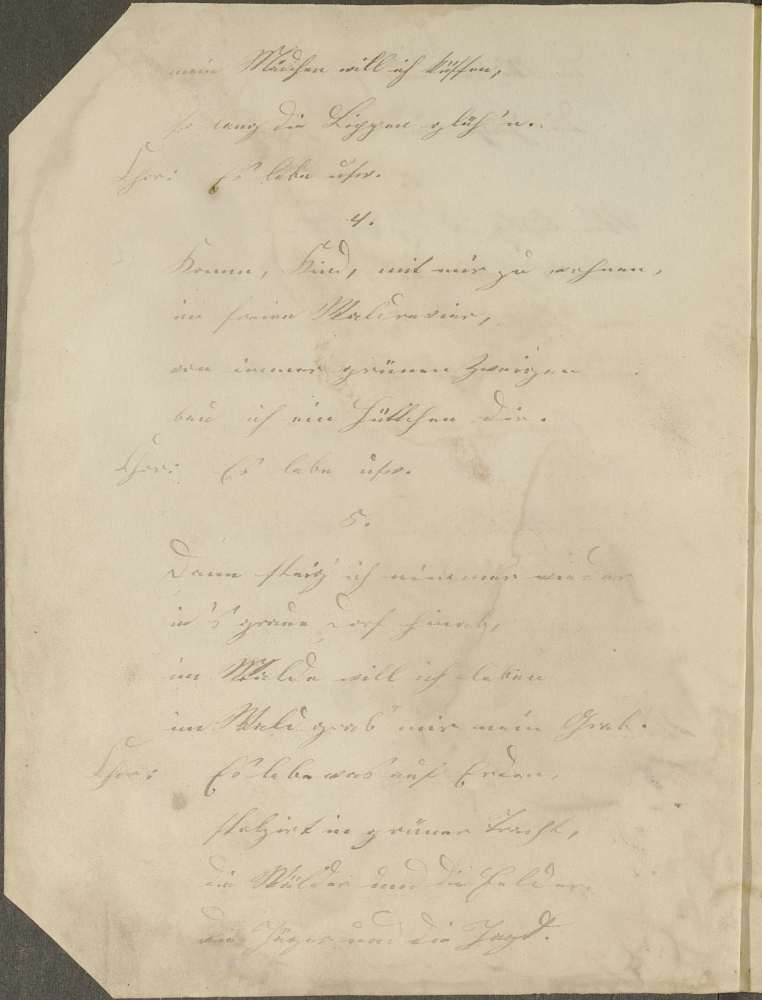 mein Mädchen will ich küssen,
so lang die Lippen glüh'n.
Chor: Es lebe usw.
4.
Komm, Kind, mit mir zu wohnen,
im freien Waldrevier,
von immer grünen Zweigen
bau ich ein Hüttchen dir.
Chor: Es lebe usw.
5.
Dann steig' ich nimmer wieder
in's graue Dorf hinab,
im Walde will ich leben
im Wald grab' mir mein Grab.
Chor: Es lebe was auf Erden,
stolzirt in grüner Tracht,
die Wälder und die Felder
die Jäger und die Jagd.